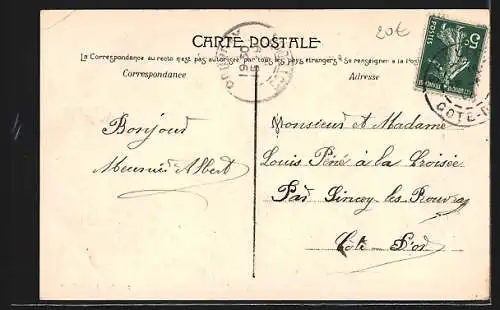 20€
CARTE POSTALE
La Correspondance au recto n'est pas autorisée par tous les pays étrangers (Se renseigner à la Poste)
Correspondance
Adresse
5c
POSTES
CÔTE-D
Bonjour
Meunier Albert
Monsieur et Madame
Louis Péné à la Croisée
Par Sincey les Rouvray
Côte d'or